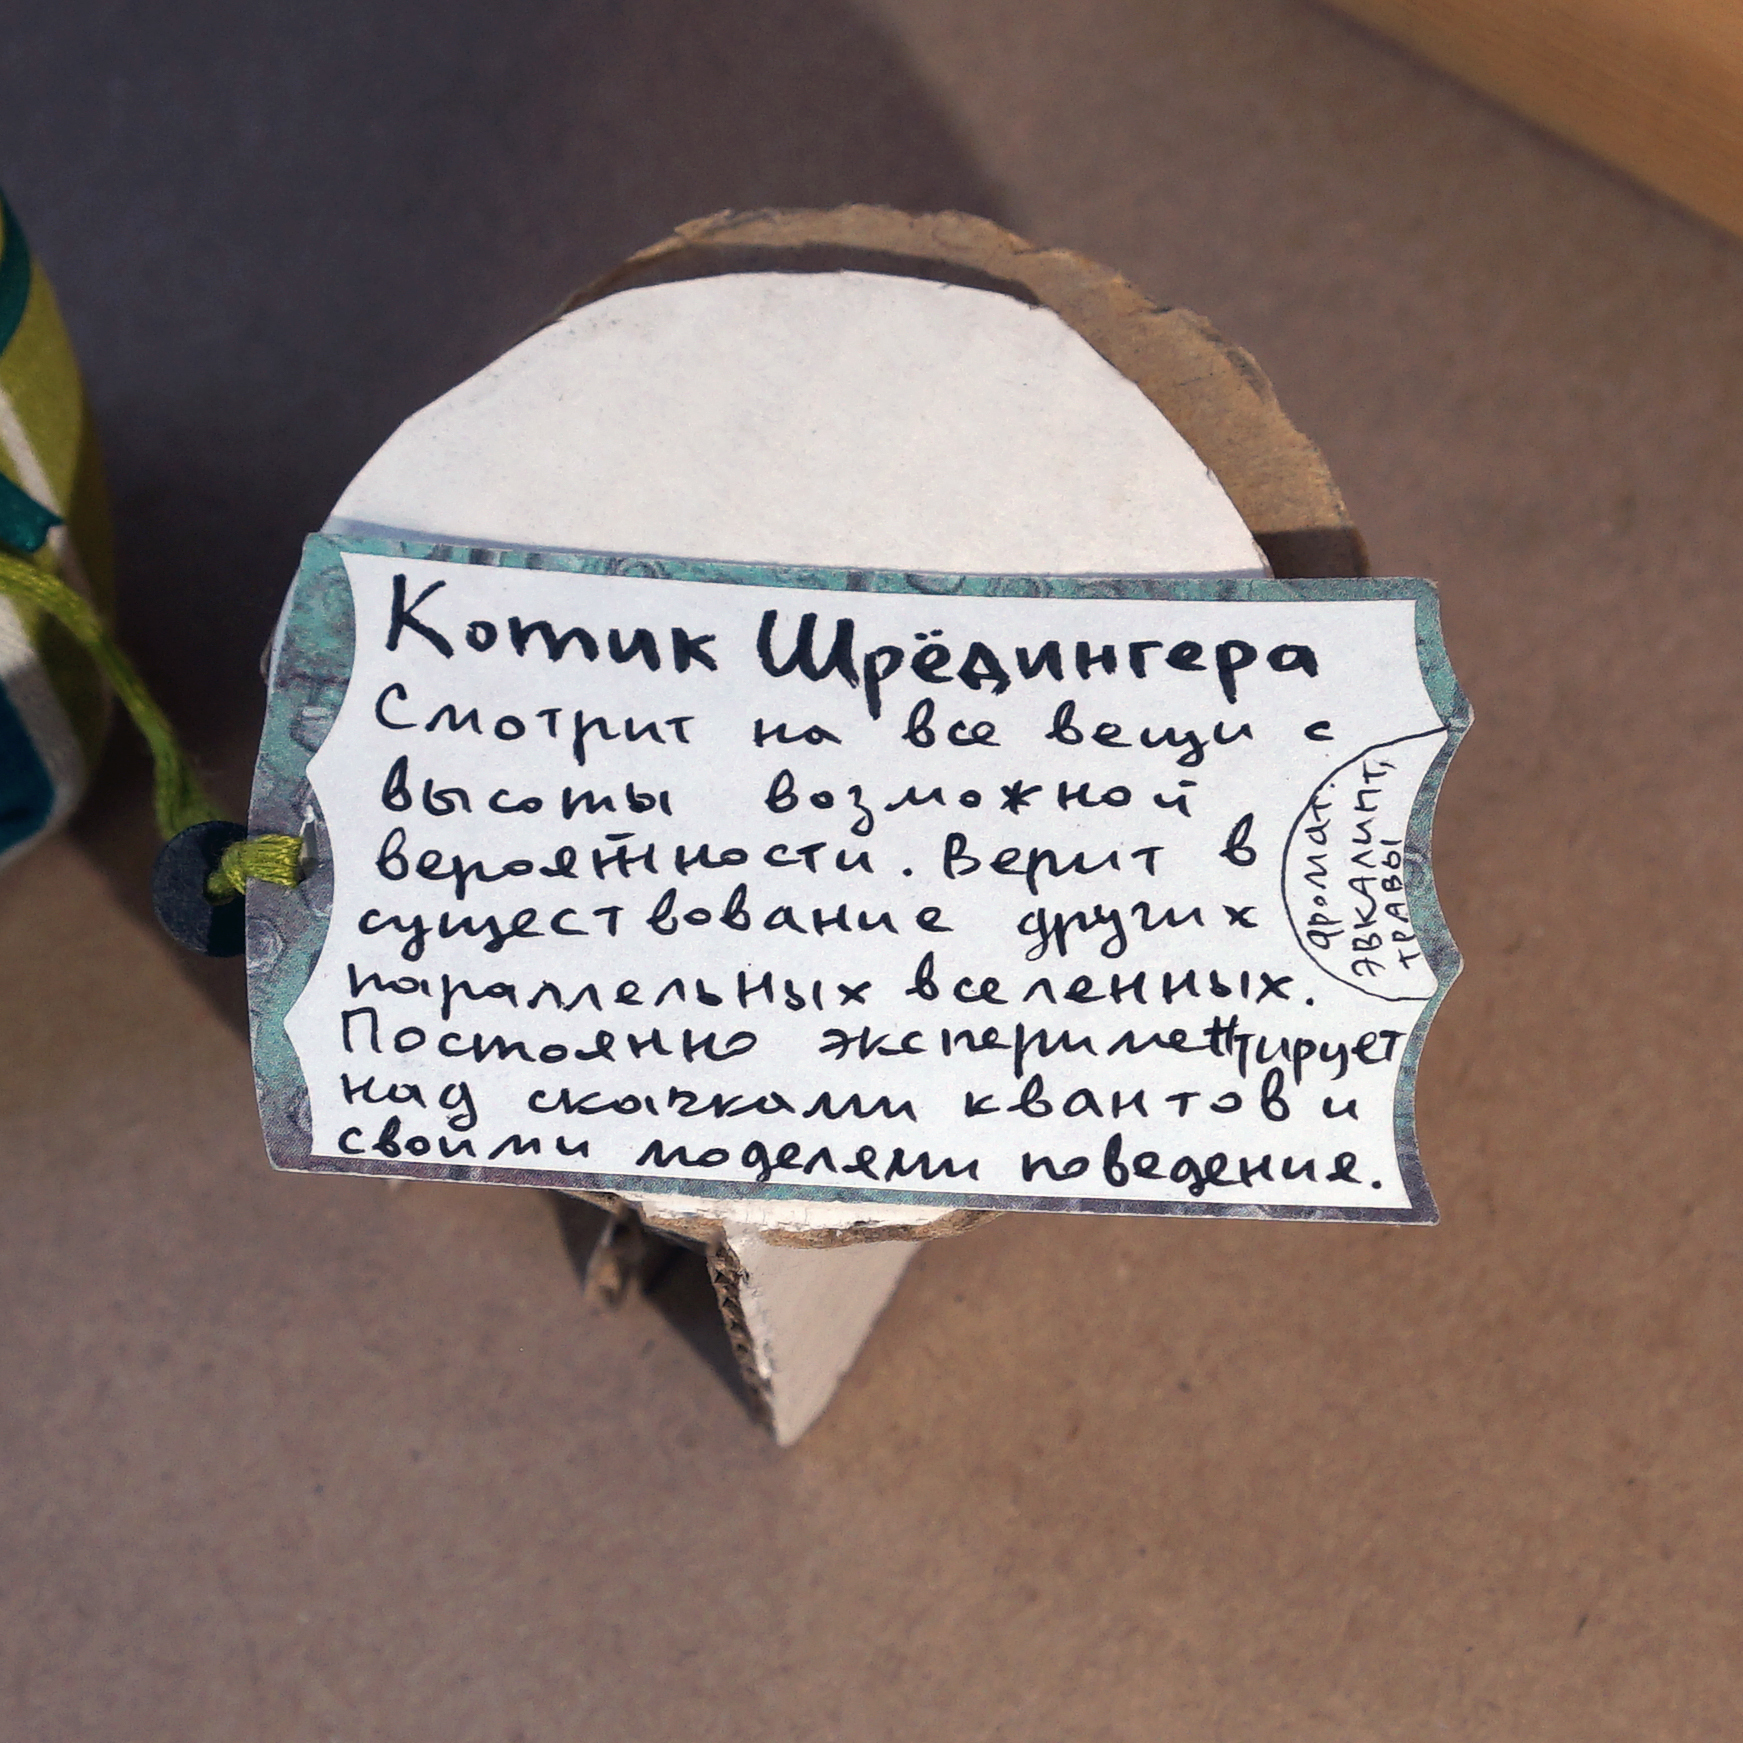 Котик Шрёдингера
Смотрит на все вещи с
высоты возможной
вероятности. Верит в
существование других
параллельных вселенных.
Постоянно экспериментирует
над скачками квантов и
своими моделями поведения.
аромат:
ЭВКАЛИПТ,
ТРАВЫ